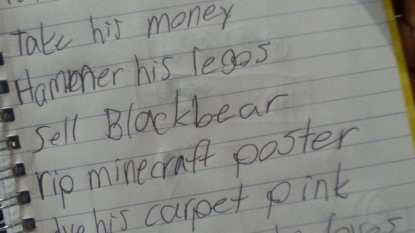 Take his money
Hammer his legos
Sell Blackbear
rip minecraft poster
his carpet pink